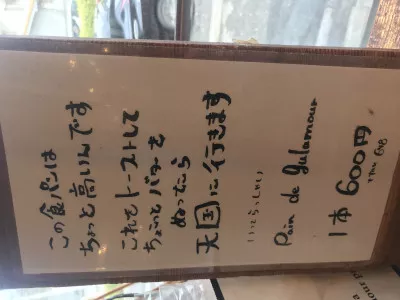 この食パンは
ちょっと高いんです
これをトーストして
ちょいとバターを
ぬったら
天国に行きます
いってらっしゃい
Pain de gulamour
1本 600円